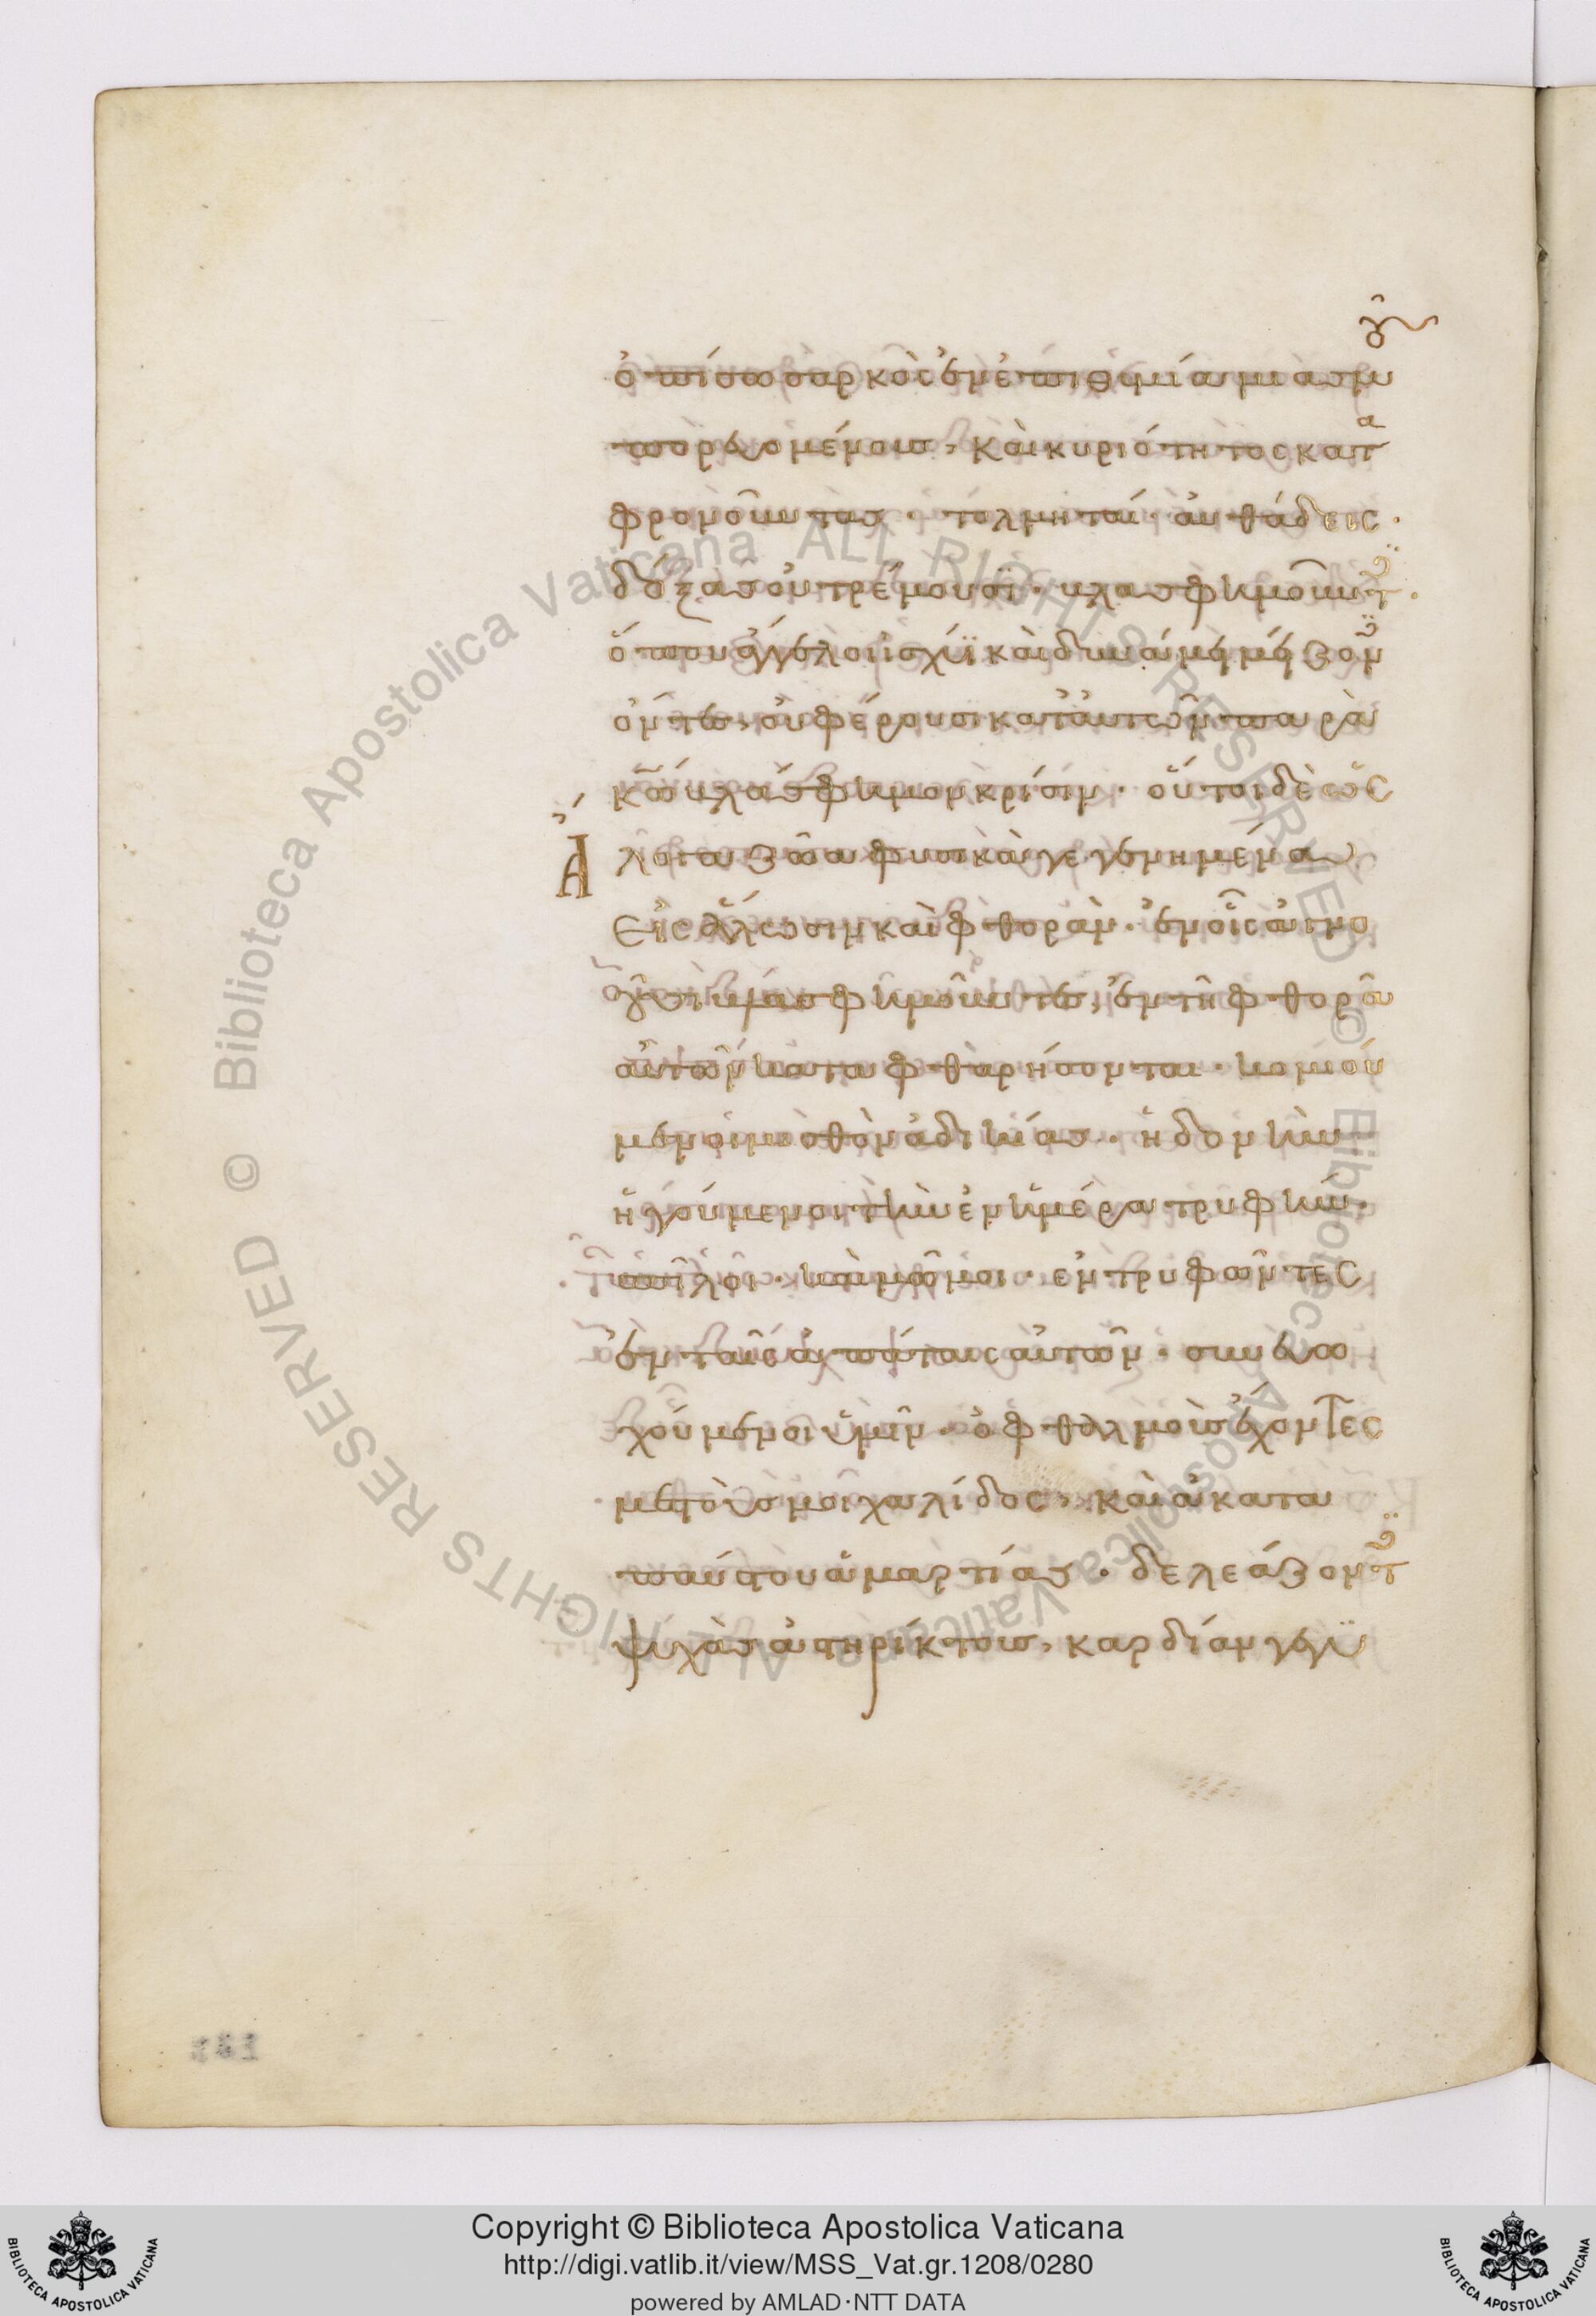 ὀπίσω σαρκὸς ἐν ἐπιθυμία μιασμοῦ
πορευομένους, καὶ κυριότητος κατα
φρονοῦντας · τολμηταί · αὐθάδεις ·
δόξας οὐ τρέμουσϊ · βλασφημοῦντες ·
ὅπου ἄγγελοι ἰσχύϊ καὶ δυνάμει μείζονες
ὄντες, οὐ φέρουσι κατ' αὐτῶν παρὰ
κω βλάσφημον κρίσιν · οὗτοι δὲ ὡς
Ἄλογα ζῶα φυσικὰ γεγενημένα
εἰς ἅλωσιν καὶ φθορὰν · ἐν οἷς ἀγνο
οῦσι βλασφημοῦντες, ἐν τῆ φθορᾶ
αὐτῶν καταφθαρήσονται · κομιού
μενοι μισθὸν ἀδικίας · ἡδονὴν
ἡγούμενοι τὴν ἐν ἡμέρα τρυφήν ·
σπῖλοι · καὶ μῶμοι · ἐντρυφῶντες
ἐν ταῖς ἀγάπαις αὐτῶν · συνευω
χούμενοι ὑμῖν · ὀφθαλμοὺς ἔχοντες
μεστοὺς μοιχαλίδος, καὶ ἀκατα
παύστου ἁμαρτίας · δελεάζοντες
ψυχὰς ἀστηρίκτους, καρδίαν γεγυ
Copyright © Biblioteca Apostolica Vaticana
http://digi.vatlib.it/view/MSS_Vat.gr.1208/0280
powered by AMLAD·NTT DATA
BIBLIOTECA APOSTOLICA VATICANA
BIBLIOTECA APOSTOLICA VATICANA
Biblioteca Apostolica Vaticana ALL RIGHTS RESERVED ©
Biblioteca Apostolica Vaticana ALL RIGHTS RESERVED ©